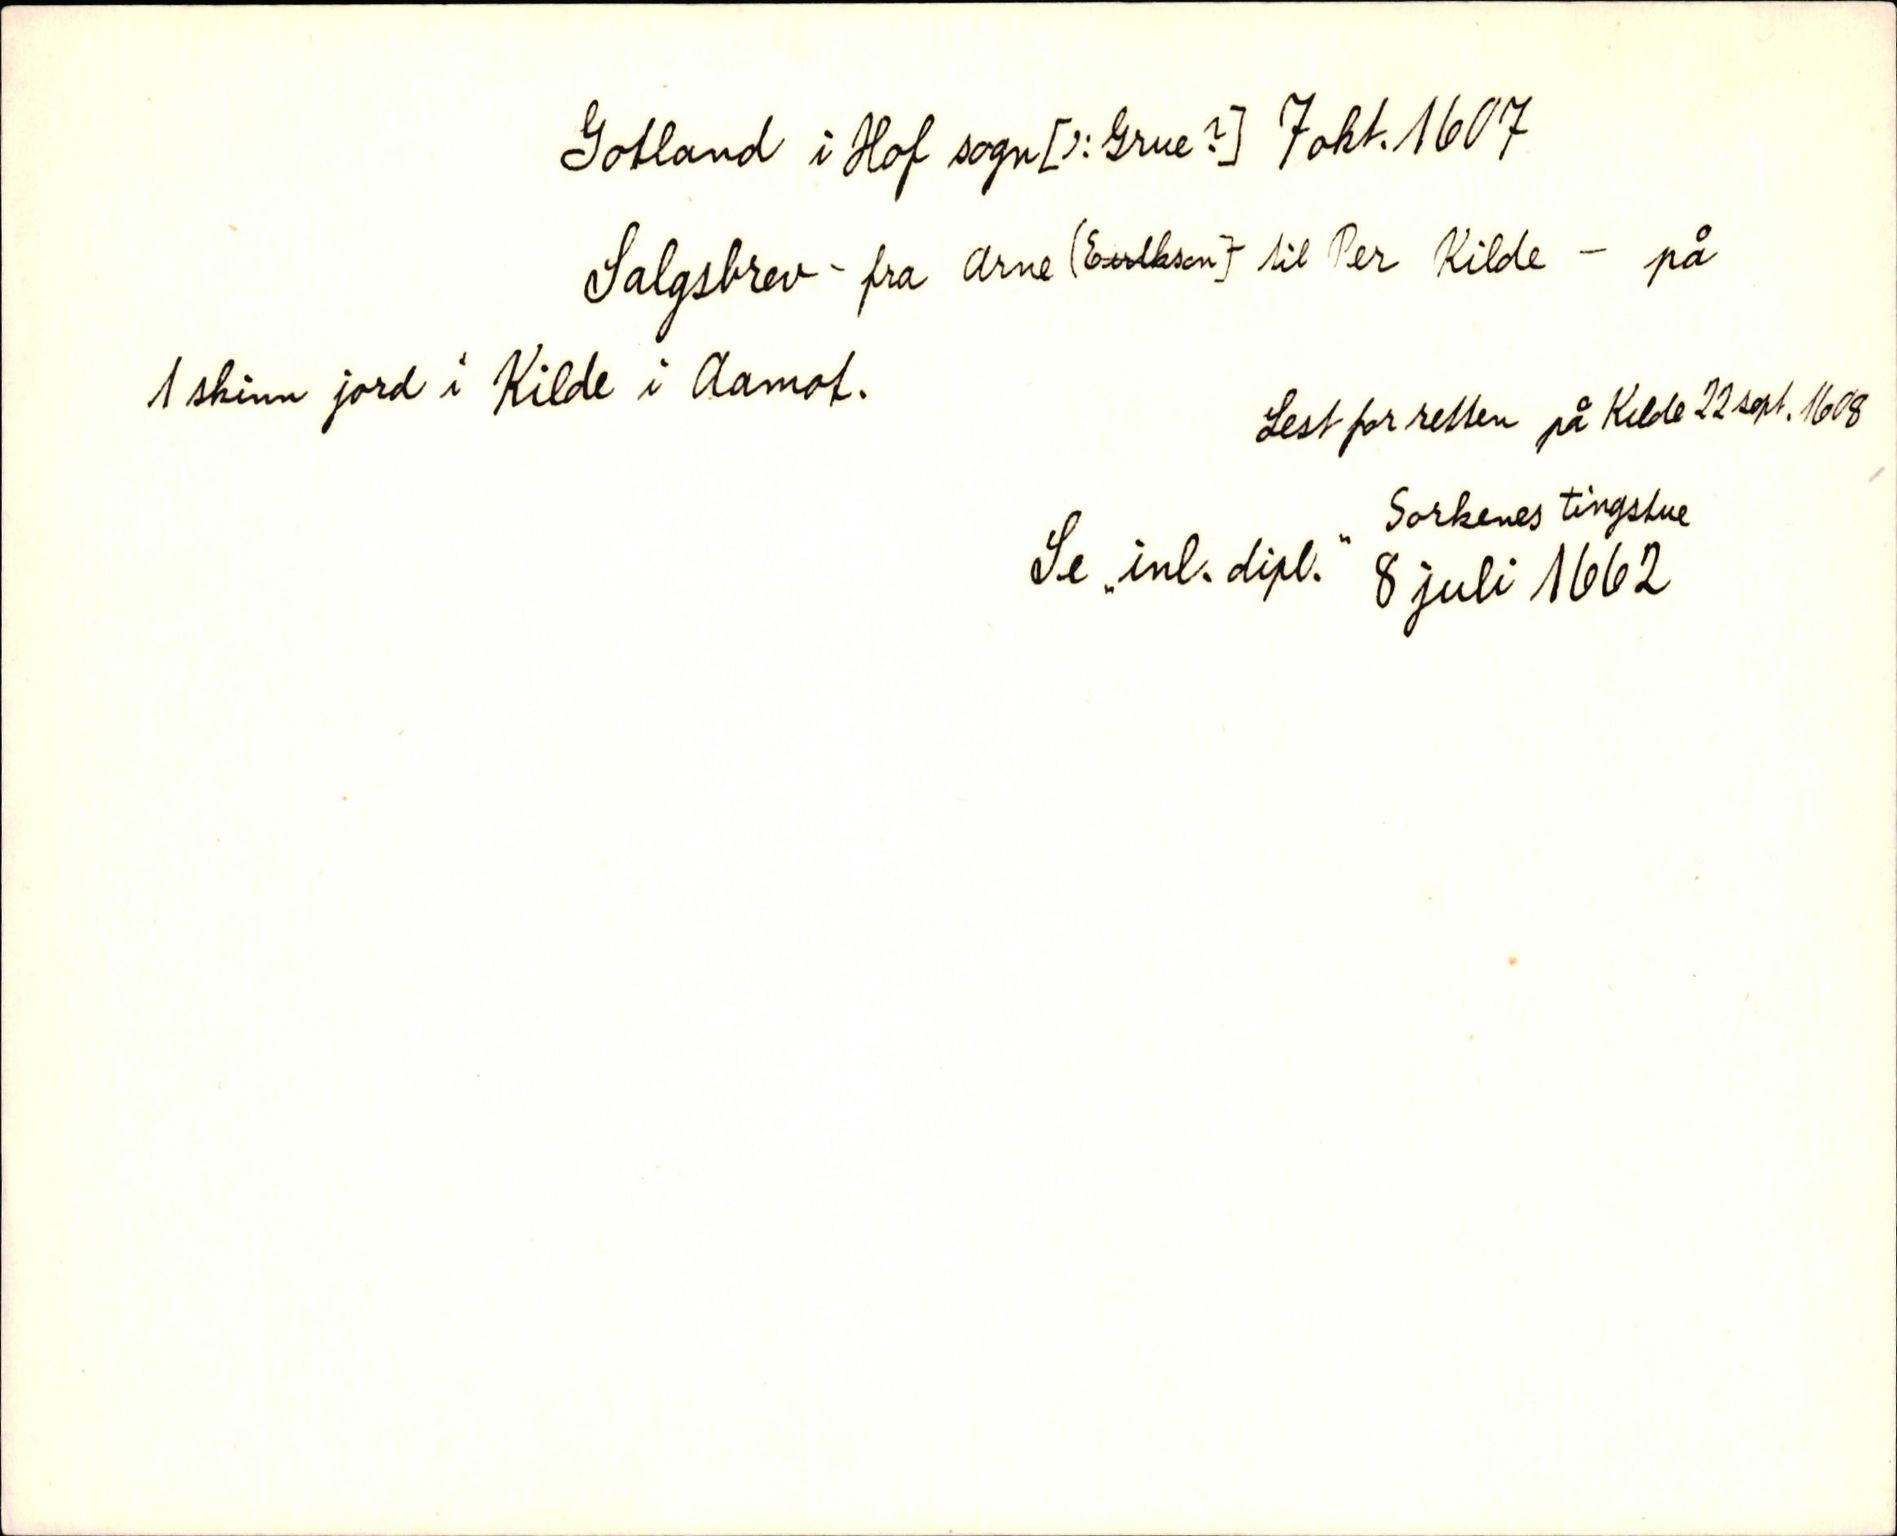 Gotland i Hof sogn [ɔ: Grue?] 7 okt. 1607
Salgsbrev - fra Arne (Eirikson) til Per Kilde - på
1 skinn jord i Kilde i Aamot.
Lest for retten på Kilde 22 sept. 1608
Sorkenes tingstue
Se „inl. dipl.“ 8 juli 1662